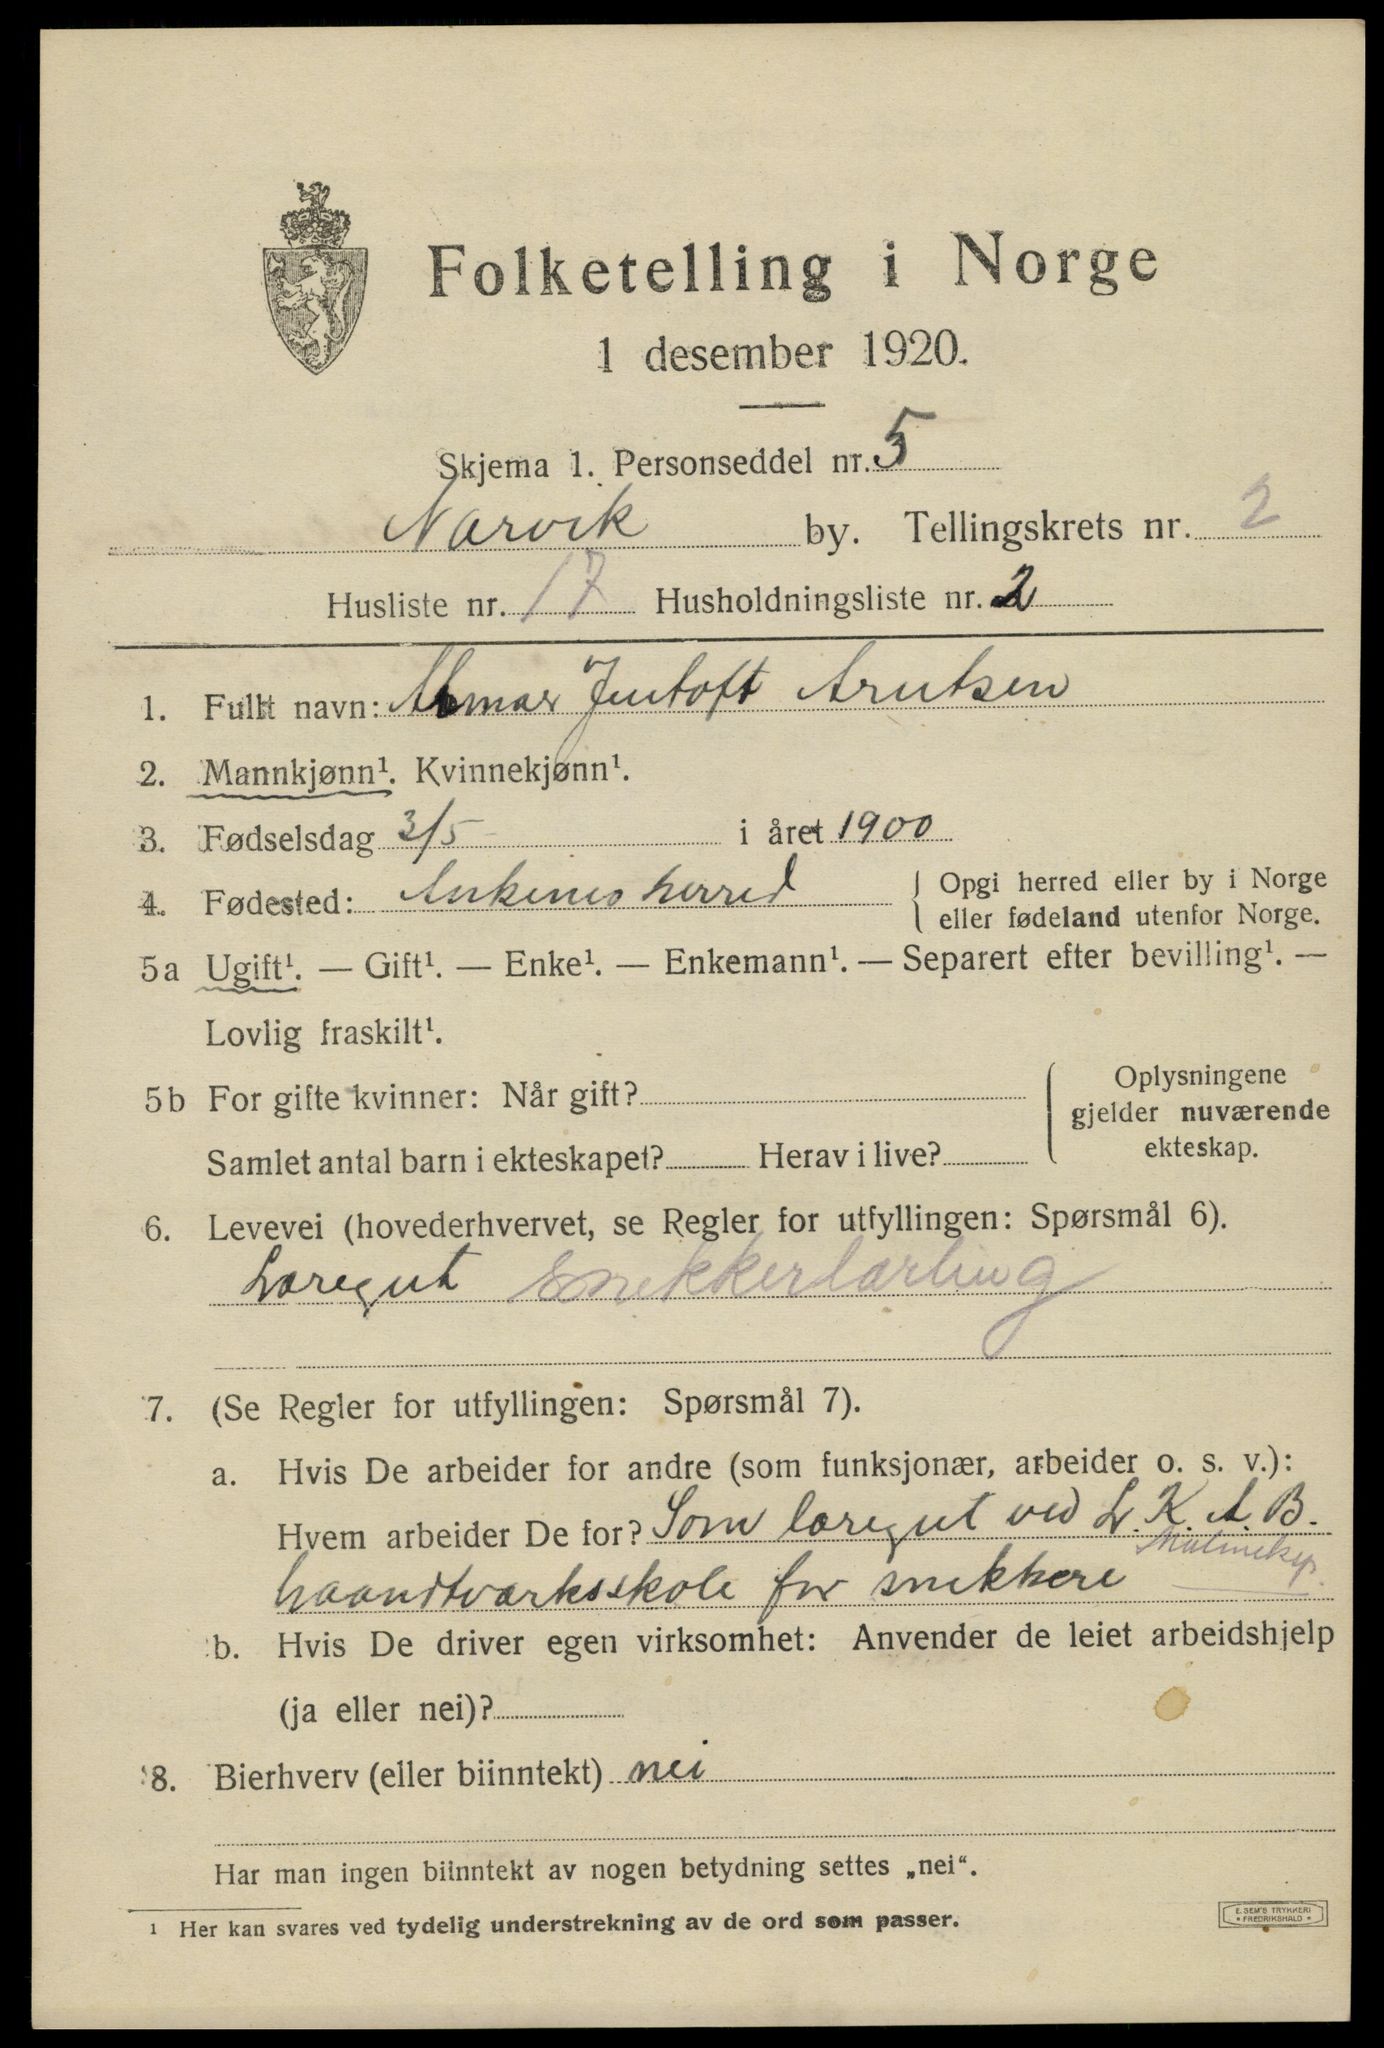 Folketelling i Norge
1 desember 1920.
Skjema 1. Personseddel nr. 5
Narvik by. Tellingskrets nr. 2
Husliste nr. 17 Husholdningsliste nr. 2
1. Fullt navn: Almar Jentoft Arntsen
2. Mannkjønn¹. Kvinnekjønn¹.
3. Fødselsdag 3/5 i året 1900
4. Fødested: Ankenes herred { Opgi herred eller by i Norge
eller fødeland utenfor Norge.
5a Ugift¹. — Gift¹. — Enke¹. — Enkemann¹. — Separert efter bevilling¹. —
Lovlig fraskilt¹.
5b For gifte kvinner: Når gift?
Samlet antal barn i ekteskapet? Herav i live?
Oplysningene
gjelder nuværende
ekteskap.
6. Levevei (hovederhvervet, se Regler for utfyllingen: Spørsmål 6).
Læregut snekkerlærling
7. (Se Regler for utfyllingen: Spørsmål 7).
a. Hvis De arbeider for andre (som funksjonær, arbeider o. s. v.):
Hvem arbeider De for? Som læregut ved L. K. A. B.
haandtverksskole for snekkere
b. Hvis De driver egen virksomhet: Anvender de leiet arbeidshjelp
(ja eller nei)?
8. Bierhverv (eller biinntekt) nei
Har man ingen biinntekt av nogen betydning settes „nei“.
¹ Her kan svares ved tydelig understrekning av de ord som passer.
E. SEM'S TRYKKERI
* FREDRIKSHALD *